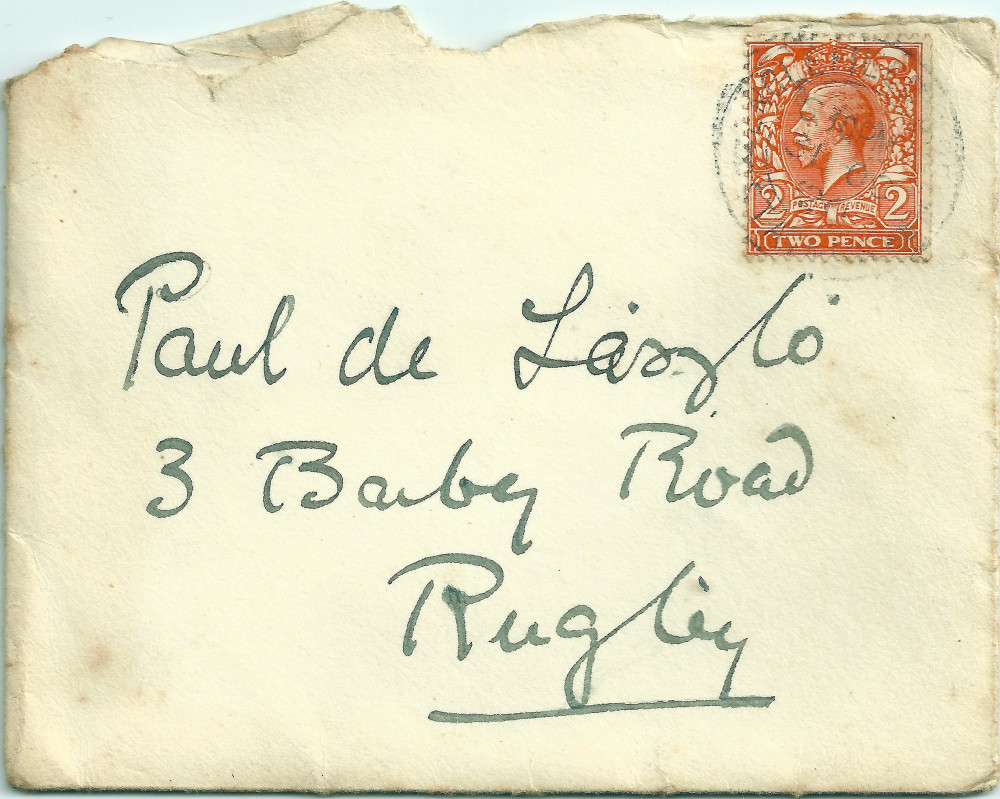 2 POSTAGE REVENUE 2
TWO PENCE
Paul de László
3 Barby Road
Rugby